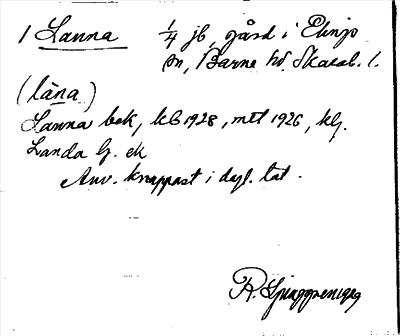 1 Lanna 1/4 jb, gård i Elings
sn, Barne hd. Skarab. l.
(làna)
Lanna bek, kb 1928, mtl 1926, klj.
Landa Ly. ek
Anv. knappast i dagl. tal.
R.